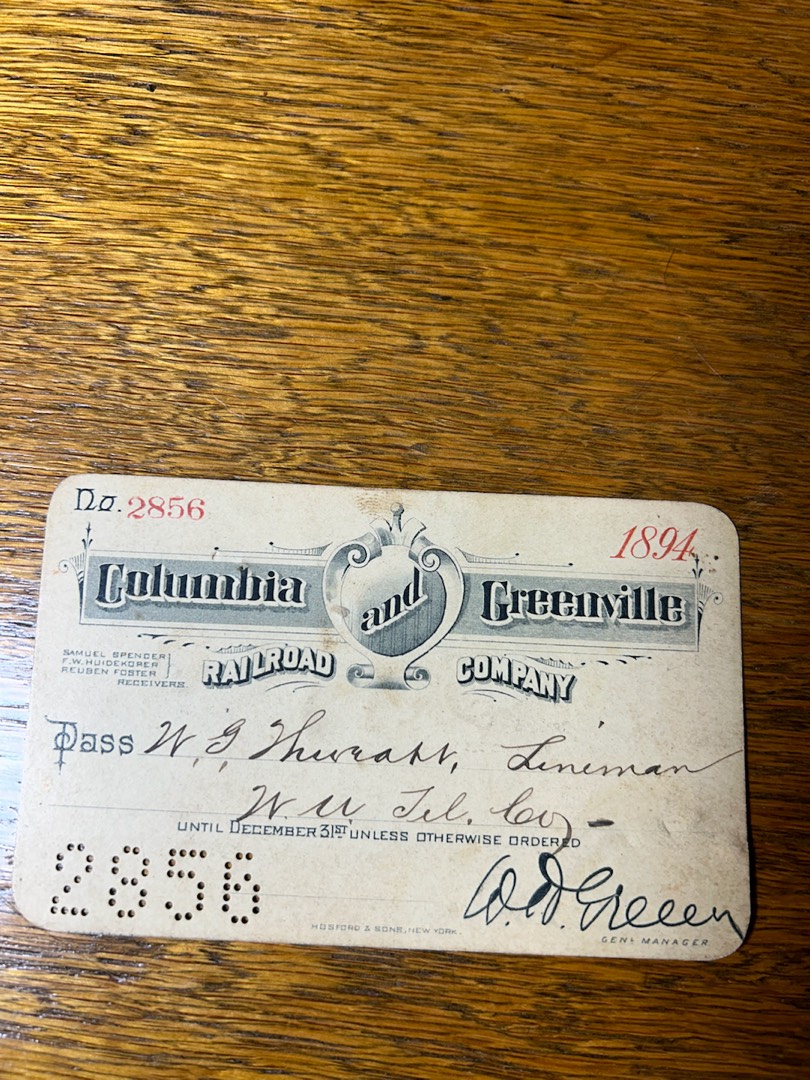 No. 2856
1894
Columbia and Greenville
RAILROAD COMPANY
SAMUEL SPENCER
F.W. HUIDEKOPER
REUBEN FOSTER
RECEIVERS.
Pass W. G. Lineman
W. U. Tel. Co.
UNTIL DECEMBER 31ST UNLESS OTHERWISE ORDERED
2856
Green
GENL MANAGER
HOSFORD & SONS, NEW YORK.